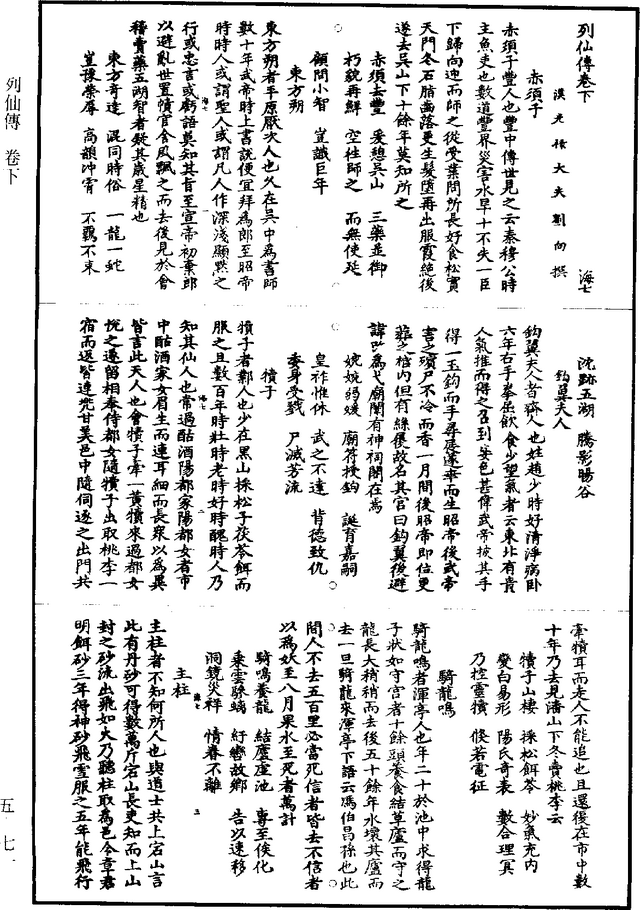 列仙傳卷下
漢光祿大夫劉向撰 海七
赤須子
赤須子豐人也豐中傳世見之云秦穆公時
主魚吏也數道豐界災害水旱十不失一臣
下歸向迎而師之從受業問所長好食松實
天門冬石脂齒落更生髮墮再出服霞絕後
遂去吳山下十餘年莫知所之
赤須去豐 爰憩吳山 三藥並御
朽貌再鮮 空往師之 而無使延
顧問小智 豈識巨年
東方朔
東方朔者平原厭次人也久在吳中為書師
數十年武帝時上書說便宜拜為郎至昭帝
時時人或謂聖人或謂凡人作深淺顯默之
行或忠言或戲語莫知其旨至宣帝初棄郎
以避亂世置幘官舍風飄之而去後見於會
稽賣藥五湖智者疑其歲星精也
東方奇達 混同時俗 一龍一蛇
豈豫榮辱 高韻沖霄 不羈不束
沈跡五湖 騰影暘谷
鈎翼夫人
鈎翼夫人者齊人也姓趙少時好清淨病臥
六年右手拳屈飲食少望氣者云東北有貴
人氣推而得之召到姿色甚偉武帝披其手
得一玉鈎而手尋展遂幸而生昭帝後武帝
害之殯尸不冷而香一月間後昭帝即位更
葬之棺內但有絲履故名其宮曰鈎翼後避
諱改為弋廟闈有神祠閣在焉
婉婉弱媛 廟符授鈎 誕育嘉嗣
皇祚惟休 武之不達 背德致仇
委身受戮 尸滅芳流
犢子
犢子者鄴人也少在黑山採松子茯苓餌而
服之且數百年時壯時老時好時醜時人乃
知其仙人也常過酤酒陽都家陽都女者市
中酤酒家女眉生而連耳細而長眾以為異
皆言此天人也會犢子牽一黃犢來過都女
悅之遂留相奉侍都女隨犢子出取桃李一
宿而返皆連兜甘美邑中隨伺逐之出門共
牽犢耳而走人不能追也且還復在市中數
十年乃去見潘山下冬賣桃李云
犢子山棲 採松餌苓 妙氣充內
變白易形 陽氏奇表 數合理冥
乃控靈犢 倏若電征
騎龍鳴
騎龍鳴者渾亭人也年二十於池中求得龍
子狀如守宮者十餘頭養食結草廬而守之
龍長大稍稍而去後五十餘年水壞其廬而
去一旦騎龍來渾亭下語云馮伯昌孫也此
間人不去五百里必當死信者皆去不信者
以為妖至八月果水至死者萬計
騎鳴養龍 結廬虛池 專至俟化
乘雲驂螭 紆轡故鄉 告以速移
洞鏡災祥 情眷不離
主柱
主柱者不知何所人也與道士共上宕山言
此有丹砂可得數萬斤宕山長吏知而上山
封之砂流出飛如火乃聽柱取為邑令章君
明餌砂三年得神砂飛雪服之五年能飛行
列仙傳 卷下
五·七一